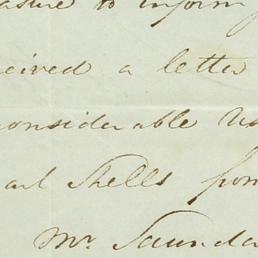 asure to inform
ceived a letter
considerable
Shells from
Mr. Saunda